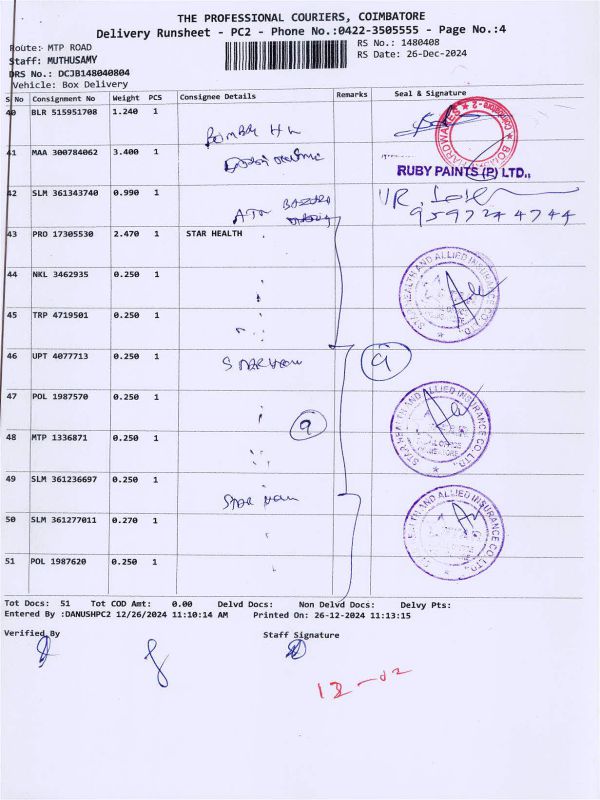 THE PROFESSIONAL COURIERS, COIMBATORE
Delivery Runsheet - PC2 - Phone No.:0422-3505555 - Page No.:4
Route: MTP ROAD RS No.: 1480408
Staff: MUTHUSAMY RS Date: 26-Dec-2024
DRS No.: DCJB148040804
Vehicle: Box Delivery
S No Consignment No Weight PCS Consignee Details Remarks Seal & Signature
40 BLR 515951708 1.240 1
41 MAA 300784062 3.400 1 RUBY PAINTS (P) LTD.,
42 SLM 361343740 0.990 1 9597244744
43 PRO 17305530 2.470 1 STAR HEALTH
44 NKL 3462935 0.250 1 STAR HEALTH AND ALLIED INSURANCE CO. LTD.
45 TRP 4719501 0.250 1
46 UPT 4077713 0.250 1
47 POL 1987570 0.250 1 STAR HEALTH AND ALLIED INSURANCE CO. LTD.
48 MTP 1336871 0.250 1
49 SLM 361236697 0.250 1
50 SLM 361277011 0.270 1 HEALTH AND ALLIED INSURANCE CO. LTD.
51 POL 1987620 0.250 1
Tot Docs: 51 Tot COD Amt: 0.00 Delvd Docs: Non Delvd Docs: Delvy Pts:
Entered By :DANUSHPC2 12/26/2024 11:10:14 AM Printed On: 26-12-2024 11:13:15
Verified By Staff Signature